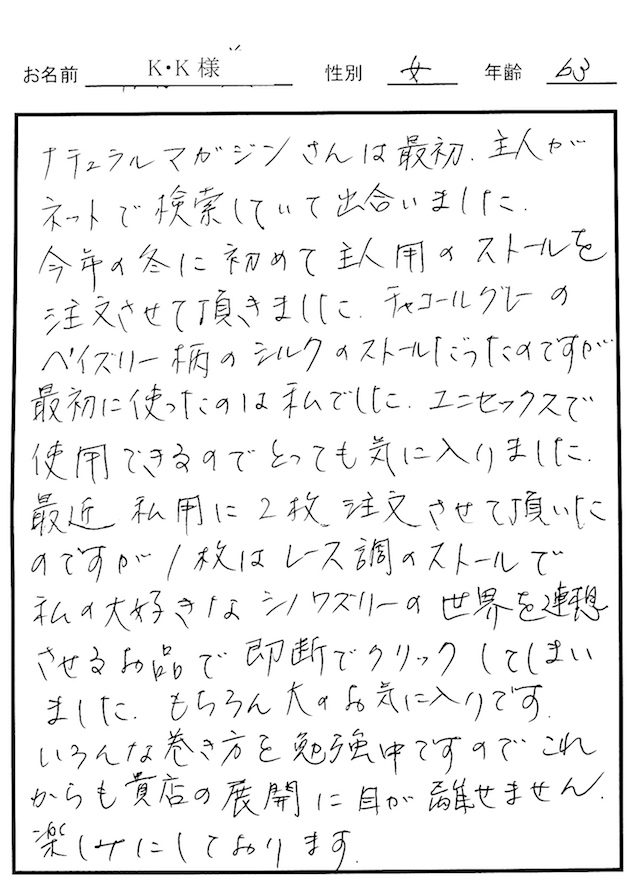 お名前 K・K様 性別 女 年齢 63
ナチュラルマガジンさんは最初、主人が
ネットで検索していて出合いました.
今年の冬に初めて主人用のストールを
注文させて頂きました. チャコールグレーの
ペイズリー柄のシルクのストールだったのですが
最初に使ったのは私でした. ユニセックスで
使用できるのでとっても気に入りました.
最近 私用に2枚 注文させて頂いた
のですが1枚はレース調のストールで
私の大好きなシノワズリーの世界を連想
させるお品で即断でクリックしてしまい
ました. もちろん大のお気に入りです.
いろんな巻き方を勉強中ですのでこれ
からも貴店の展開に目が離せません.
楽しみにしております.